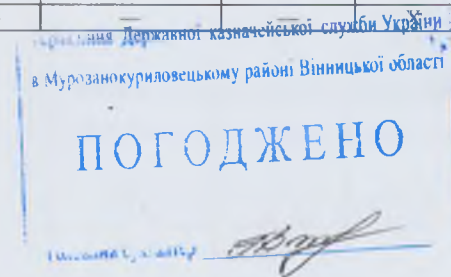 Державної казначейської служби України
в Мурованокуриловецькому районі Вінницької області
ПОГОДЖЕНО